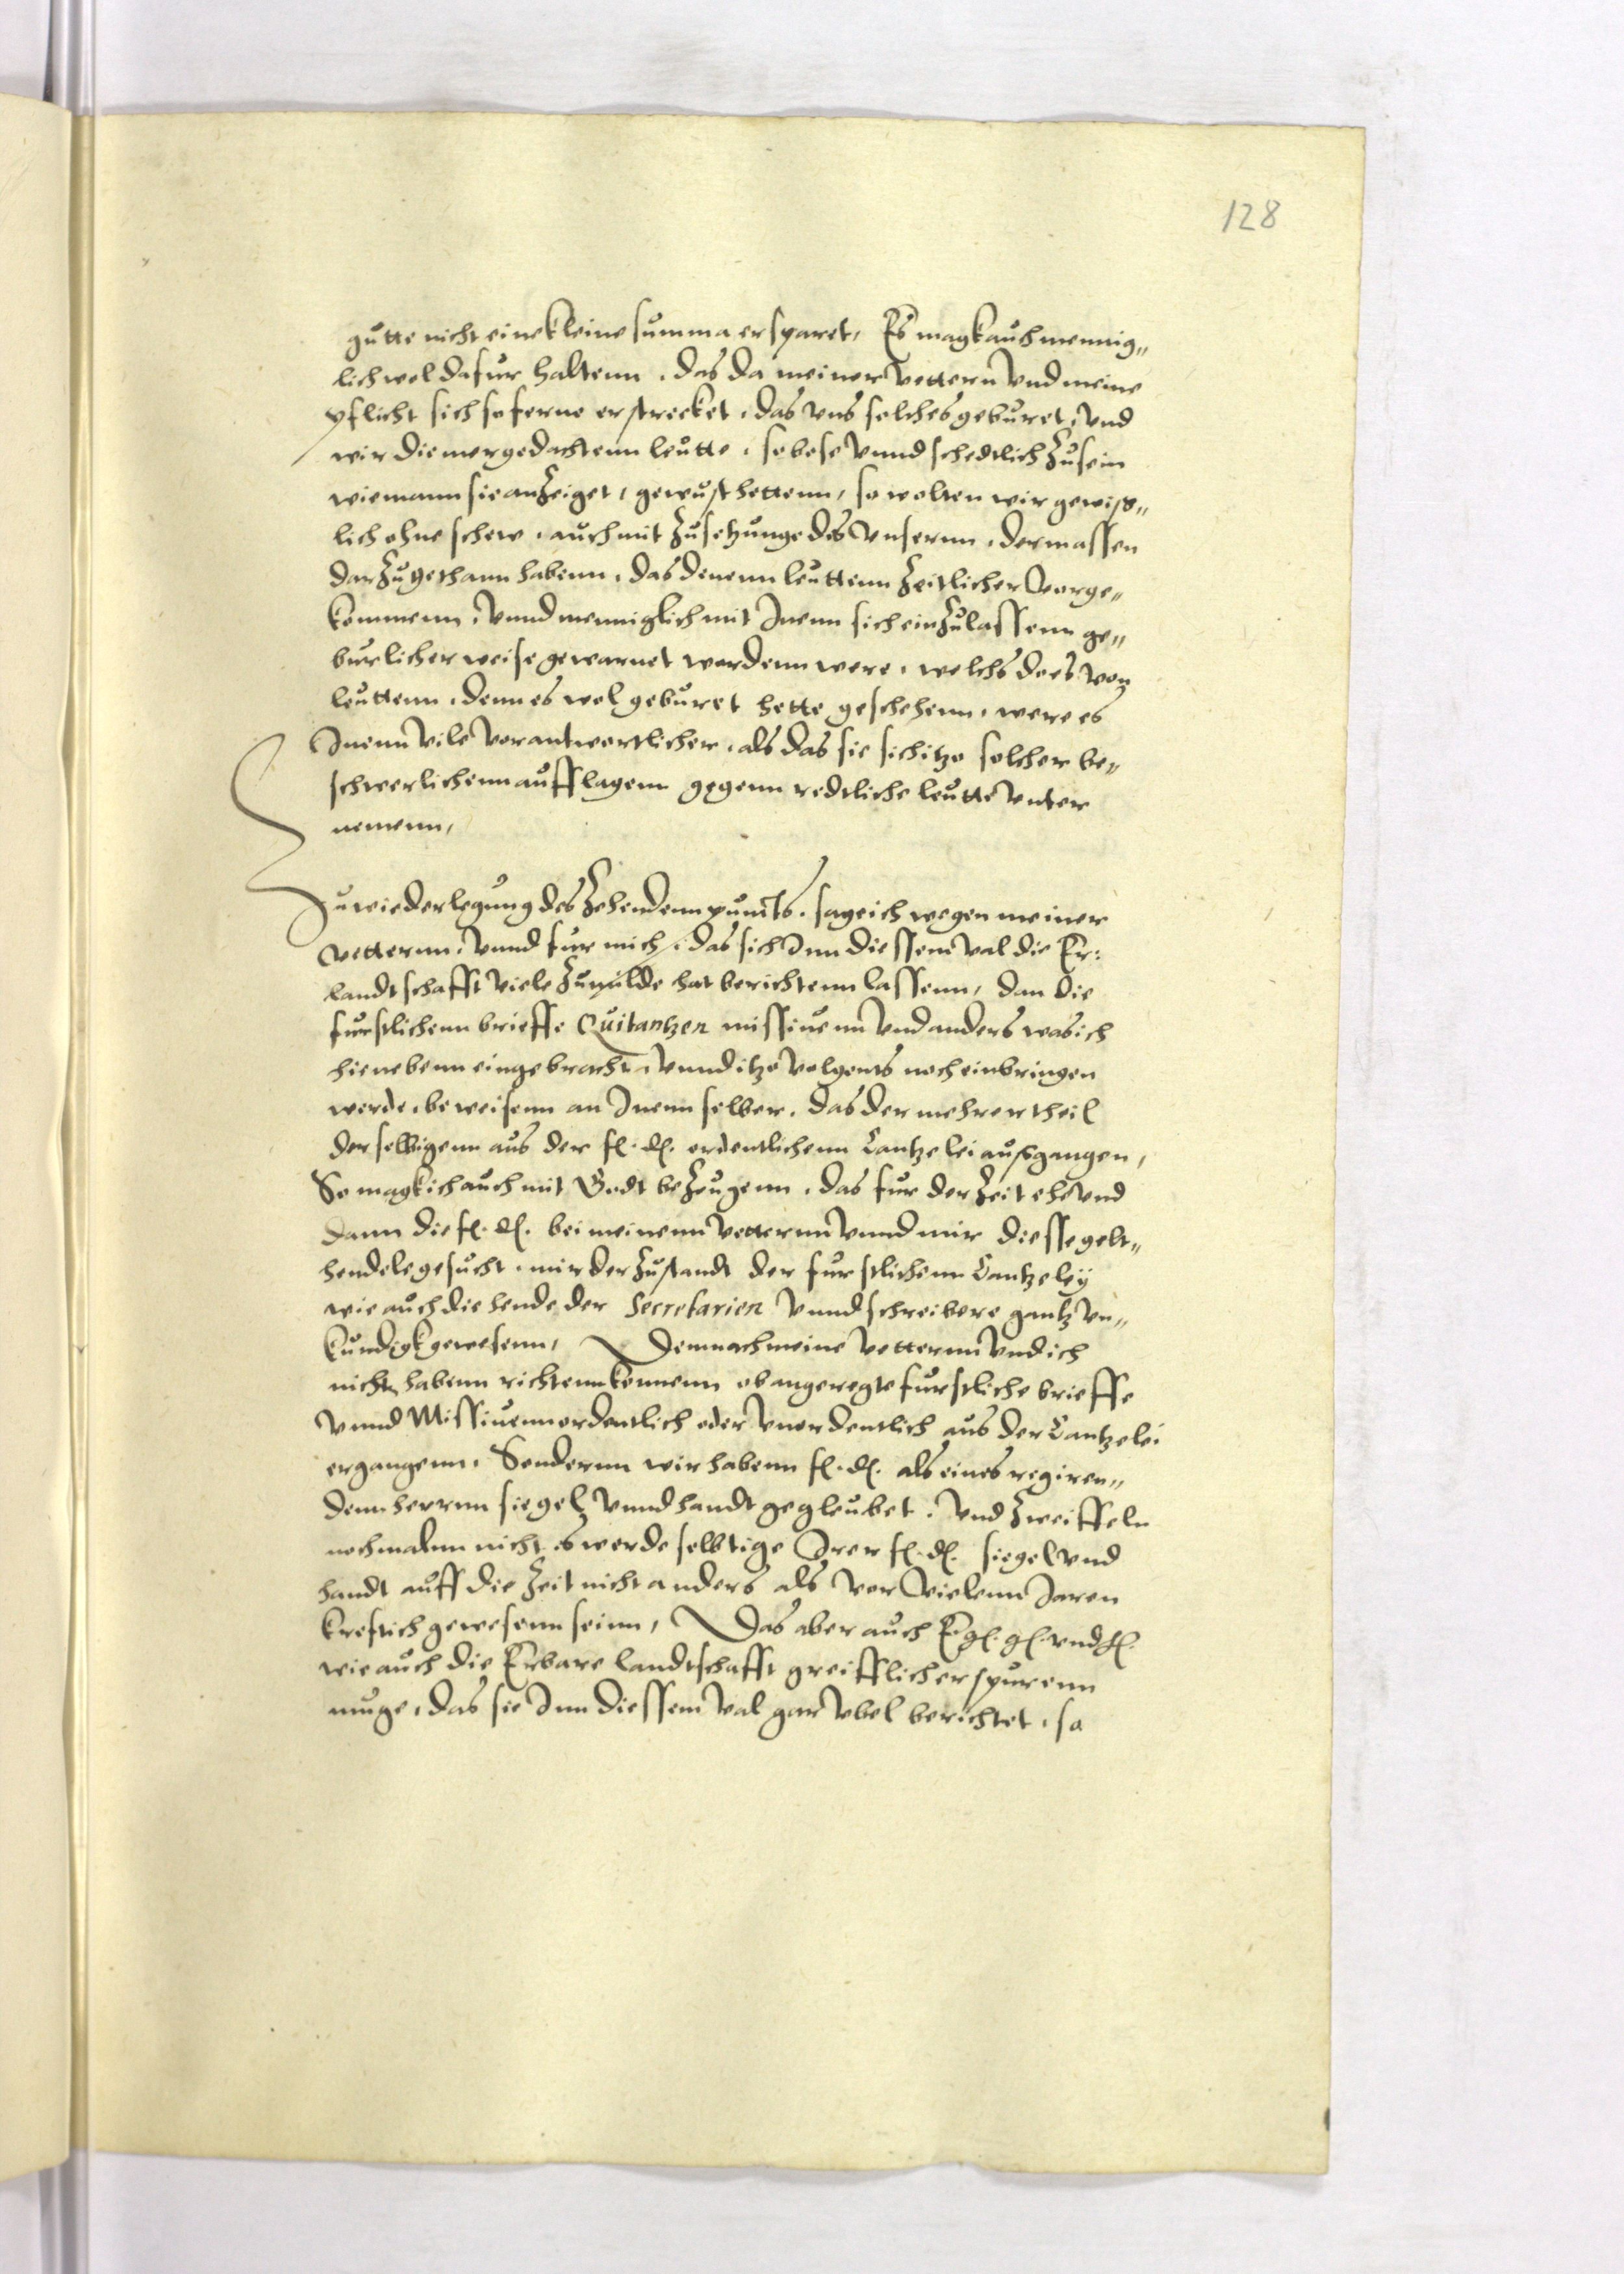 128
gutte nicht eine kleine summa ersparet, Es magk auch mennig„
lich wol dafur haltenn, das da meiner Vettern Vnd meine
pflicht sich so ferne erstrecket, das vns solches geburet, Vnd
wir die mergedachtenn leutte, so bose Vnnd schedtlich Zu sein
wie mann sie anZeiget, gewust hettenn, so wolten wir gewiß„
lich ohne schew, auch mit Zusetzunge des Vnsernn, dermassen
darZu gethann habenn, das denenn leuttenn Zeitlicher Vorge„
kommenn, Vnnd menniglich mit Inenn sich einZulassenn ge„
burlicher weise gewarnet wordenn were, welchs do es von
leuttenn, denn es wol geburet hette geschehenn, were es
Inenn Vile Verantwortlicher, als das sie sich itzo solcher be„
schwerlichenn aufflagenn gegenn redtliche leutte Vnter
nemenn,
Zu wiederlegung des Zehendenn puncts, sage ich wegen meiner
Vetternn, Vnnd fur mich, das sich Inn diessem Val die Er:
landtschafft Viele Zu milde hat berichtenn lassenn, dan die
furstlichenn brieffe Quitantzen missiuenn Vnd anders was ich
hienebenn eingebracht, Vnnd itzo Volgents noch einbringen
werde, beweisenn an Inenn selber, das der mehrertheil
derselbigenn aus der fl. dl. ordentlichenn Cantzelei außgangen,
So magk ich auch mit Godt beZeugenn, das fur der Zeit ehe Vnd
dann die fl. dl. bei meinenn Vetternn Vnnd mir diesse gelt„
hendele gesucht, mir der Zustandt der furstlichenn Cantzeleÿ
wie auch die hende der Secretarien Vnnd schreibere gantz Vn„
kundigk gewesenn, Demnach meine Vetternn Vnd ich
nicht habenn richtenn konnenn ob angeregte furstliche brieffe
Vnnd Missiuenn ordentlich oder Vnordentlich aus der Cantzelei
ergangenn, Sondernn wir habenn fl. dl. als eines regiren„
denn herrnn siegel Vnnd handt gegleubet, Vnd Zweiffeln
nochmalnn nicht es werde selbtige Irer fl. dl. siegel Vnd
handt auff die Zeit nicht anders als vor Vielenn Jaren
kreftich gewesenn seinn, Das aber auch E. gl. gl. vnd fl.
wie auch die Erbare landtschafft greifflich erspurenn
muge, das sie Inn diessem Val gar Vbel berichtet, so